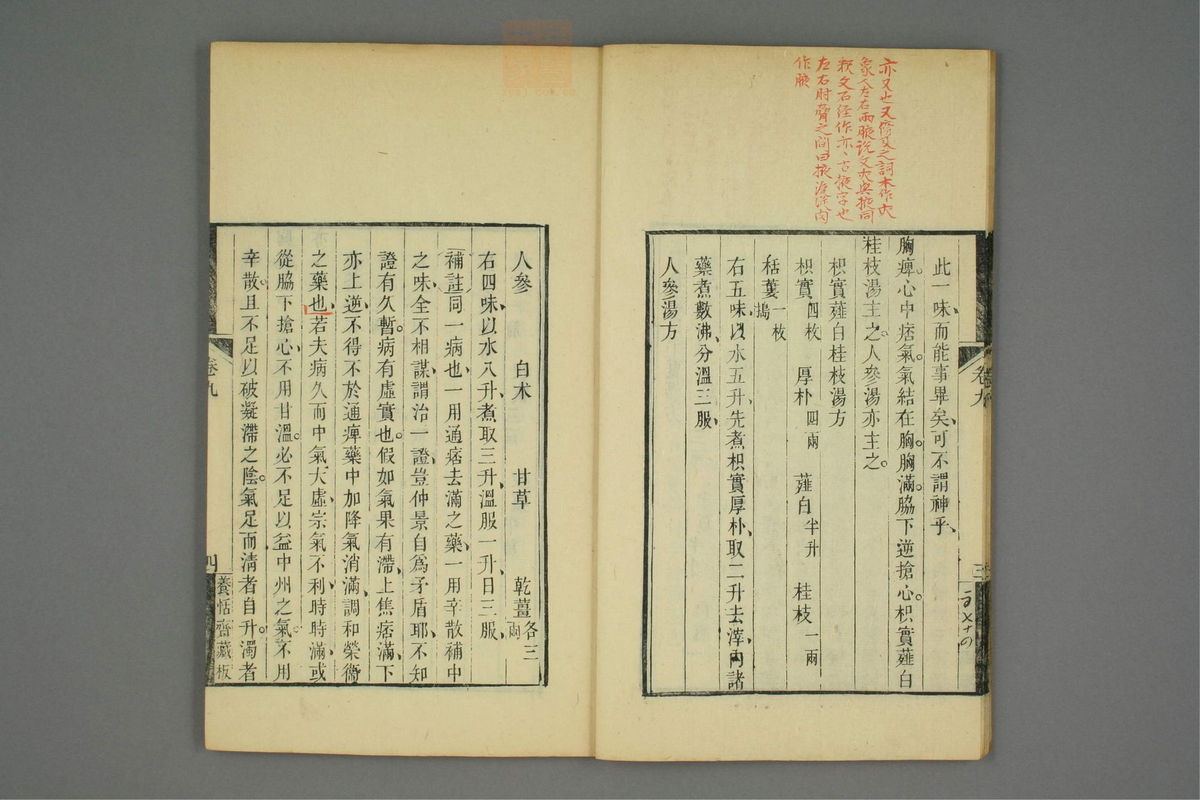 亦又也又傍及之詞本作夾
象人左右兩腋說文夾與掖同
釈文石経作亦亦古掖字也
左右肘脅之間曰掖
作腋
此一味而能事畢矣可不謂神乎
胸痺心中痞氣氣結在胸胸滿脇下逆搶心枳實薤白
桂枝湯主之人參湯亦主之
枳實薤白桂枝湯方
枳實四枚 厚朴四兩 薤白半升 桂枝一兩
栝蔞一枚搗
右五味以水五升先煮枳實厚朴取二升去滓內諸
藥煮數沸分溫三服
人參湯方
卷九
三
人參 白朮 甘草 乾薑各三兩
右四味以水八升煮取三升溫服一升日三服
補註同一病也一用通痞去滿之藥一用辛散補中
之味全不相謀謂治一證豈仲景自爲矛盾耶不知
證有久暫病有虛實也假如氣果有滯上焦痞滿下
亦上逆不得不於通痺藥中加降氣消滿調和榮衞
之藥也若夫病久而中氣大虛宗氣不利時時滿或
從脇下搶心不用甘溫必不足以益中州之氣不用
辛散且不足以破凝滯之陰氣足而淸者自升濁者
卷九
四
養恬齋藏板